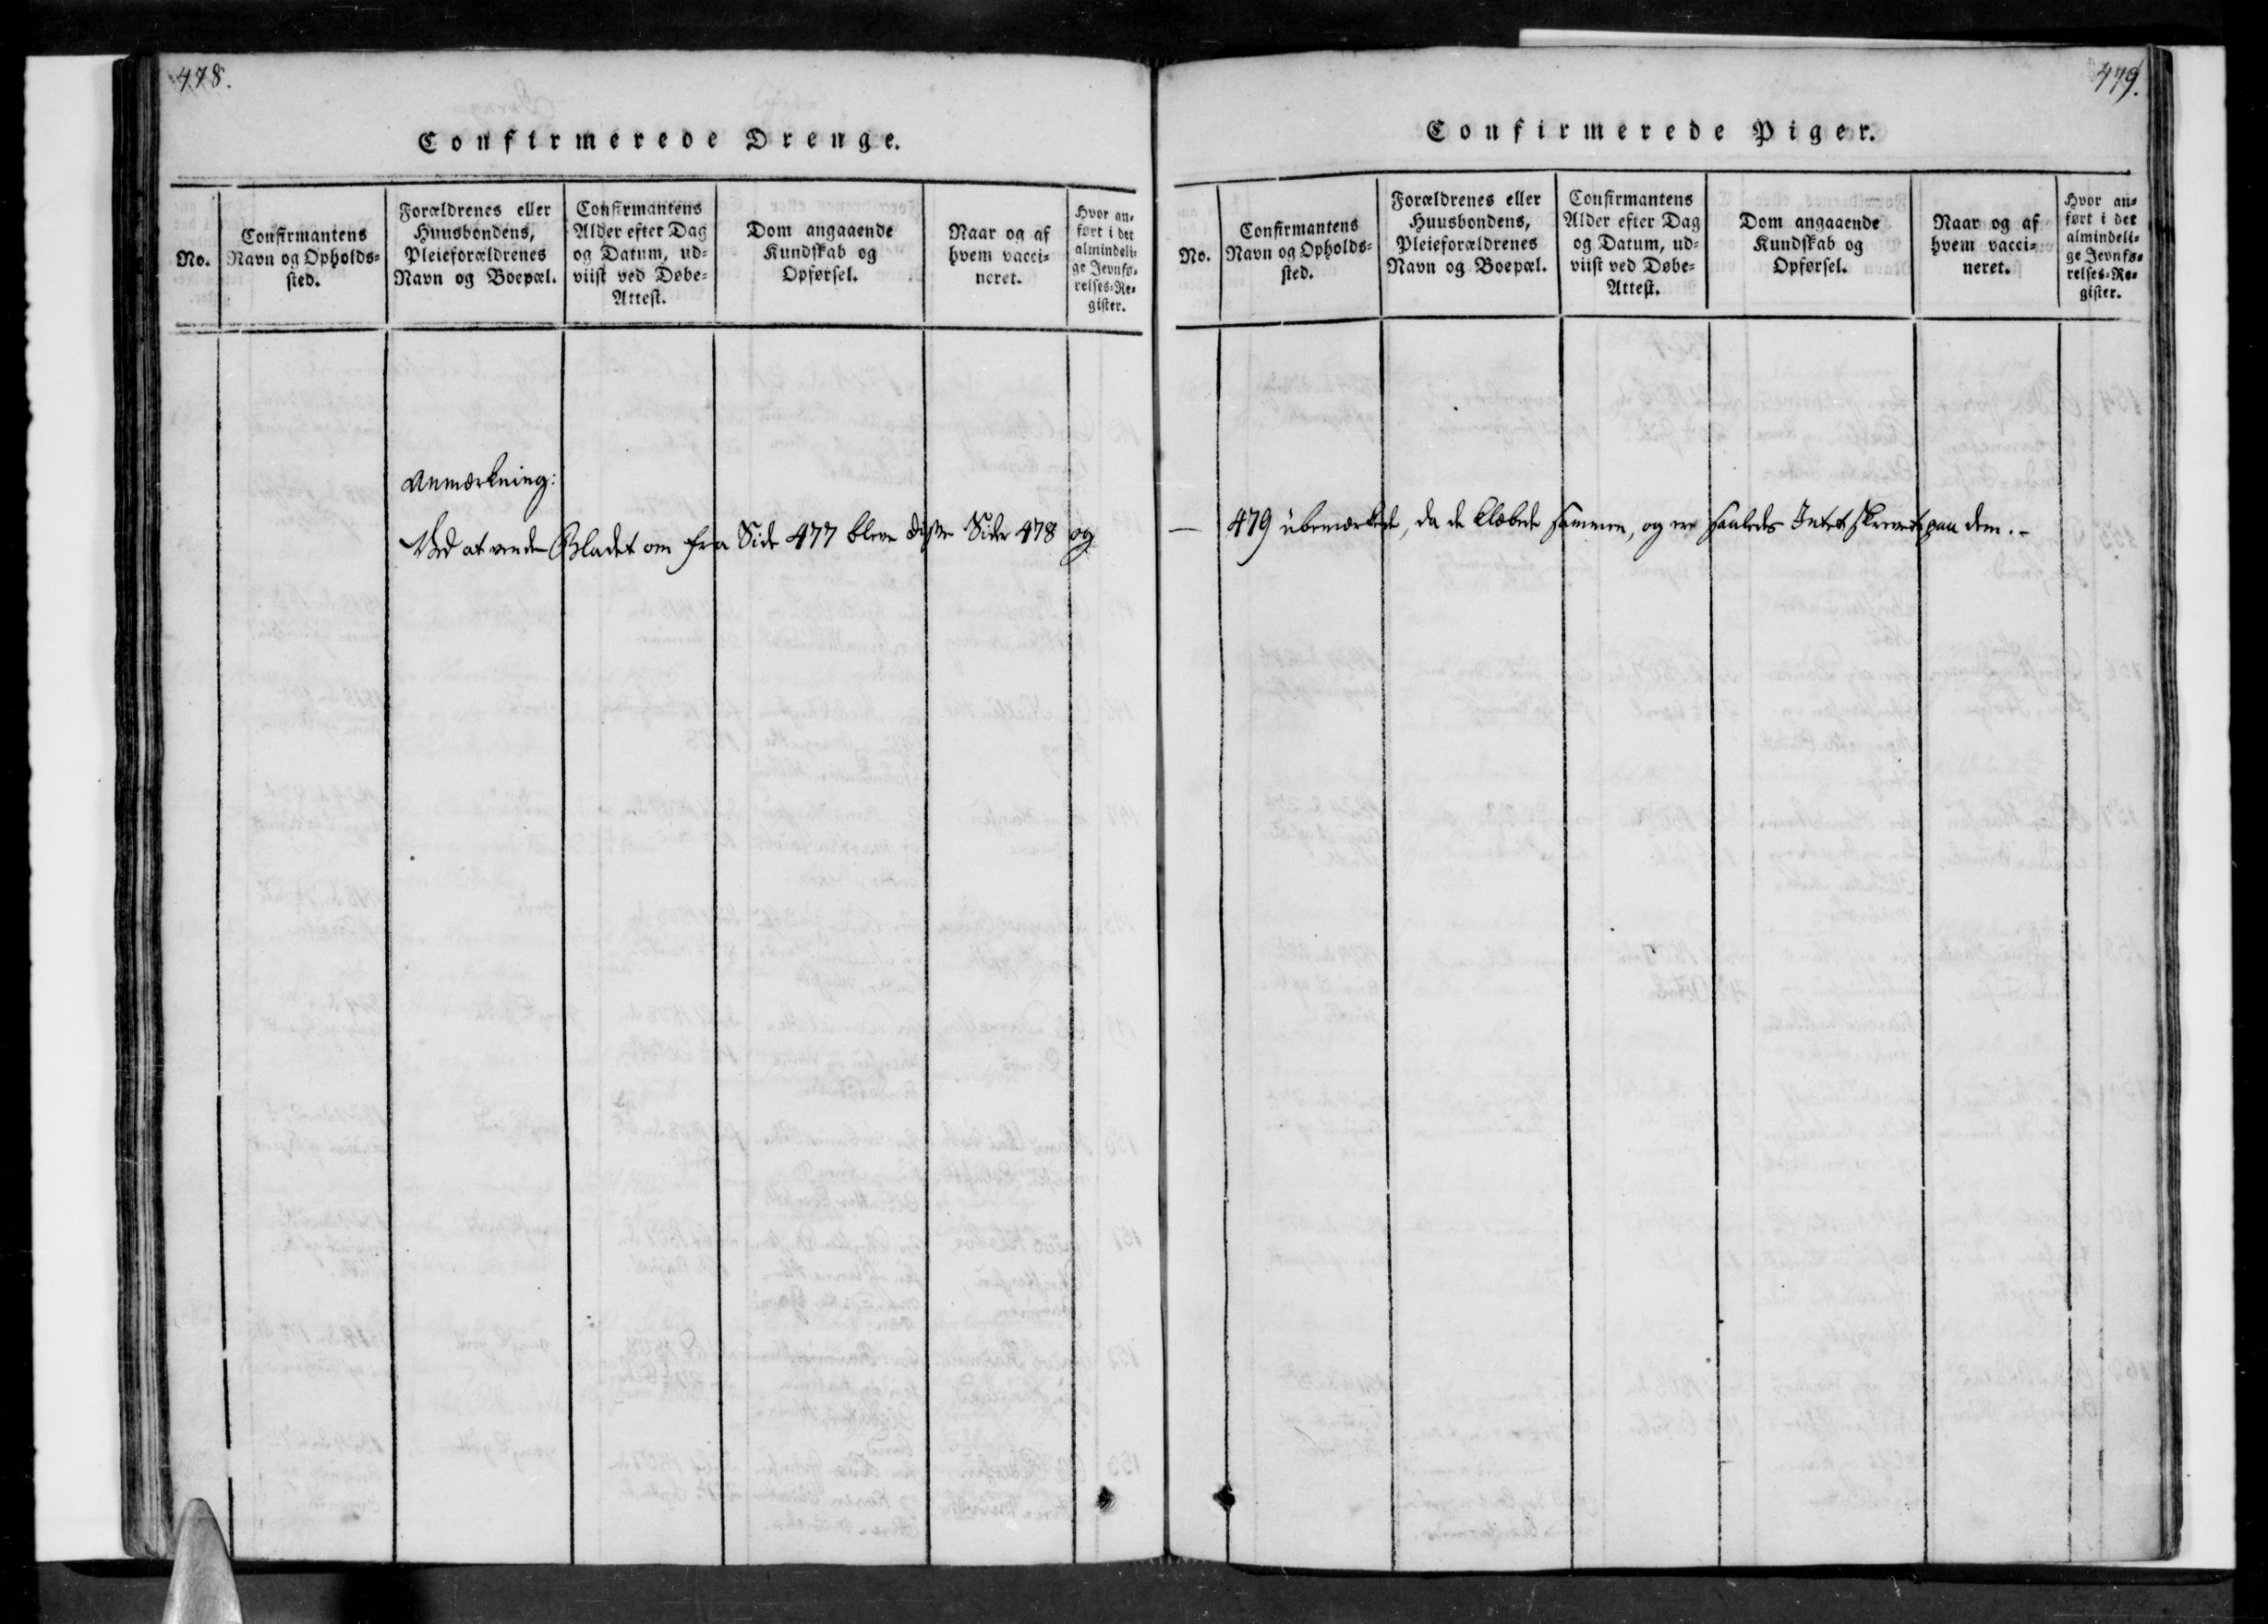 478.
Confirmerede Drenge.
No.
Confirmantens
Navn og Opholds-
sted.
Forældrenes eller
Huusbondens,
Pleieforældrenes
Navn og Boepæl.
Confirmantens
Alder efter Dag
og Datum, ud-
viist ved Døbe-
Attest.
Dom angaaende
Kundskab og
Opførsel.
Naar og af
hvem vacci-
neret.
Hvor an-
ført i det
almindeli-
ge Jevnfø-
relses-Re-
gister.
Anmærkning:
Ved at vende Bladet om fra Side 477 bleve disse Sider 478 og
479.
Confirmerede Piger.
No.
Confirmantens
Navn og Opholds-
sted.
Forældrenes eller
Huusbondens,
Pleieforældrenes
Navn og Boepæl.
Confirmantens
Alder efter Dag
og Datum, ud-
viist ved Døbe-
Attest.
Dom angaaende
Kundskab og
Opførsel.
Naar og af
hvem vacci-
neret.
Hvor an-
ført i det
almindeli-
ge Jevnfø-
relses-Re-
gister.
— 479 übemærkede, da de klæbede sammen, og er saaledes Intet skrevet paa dem.-